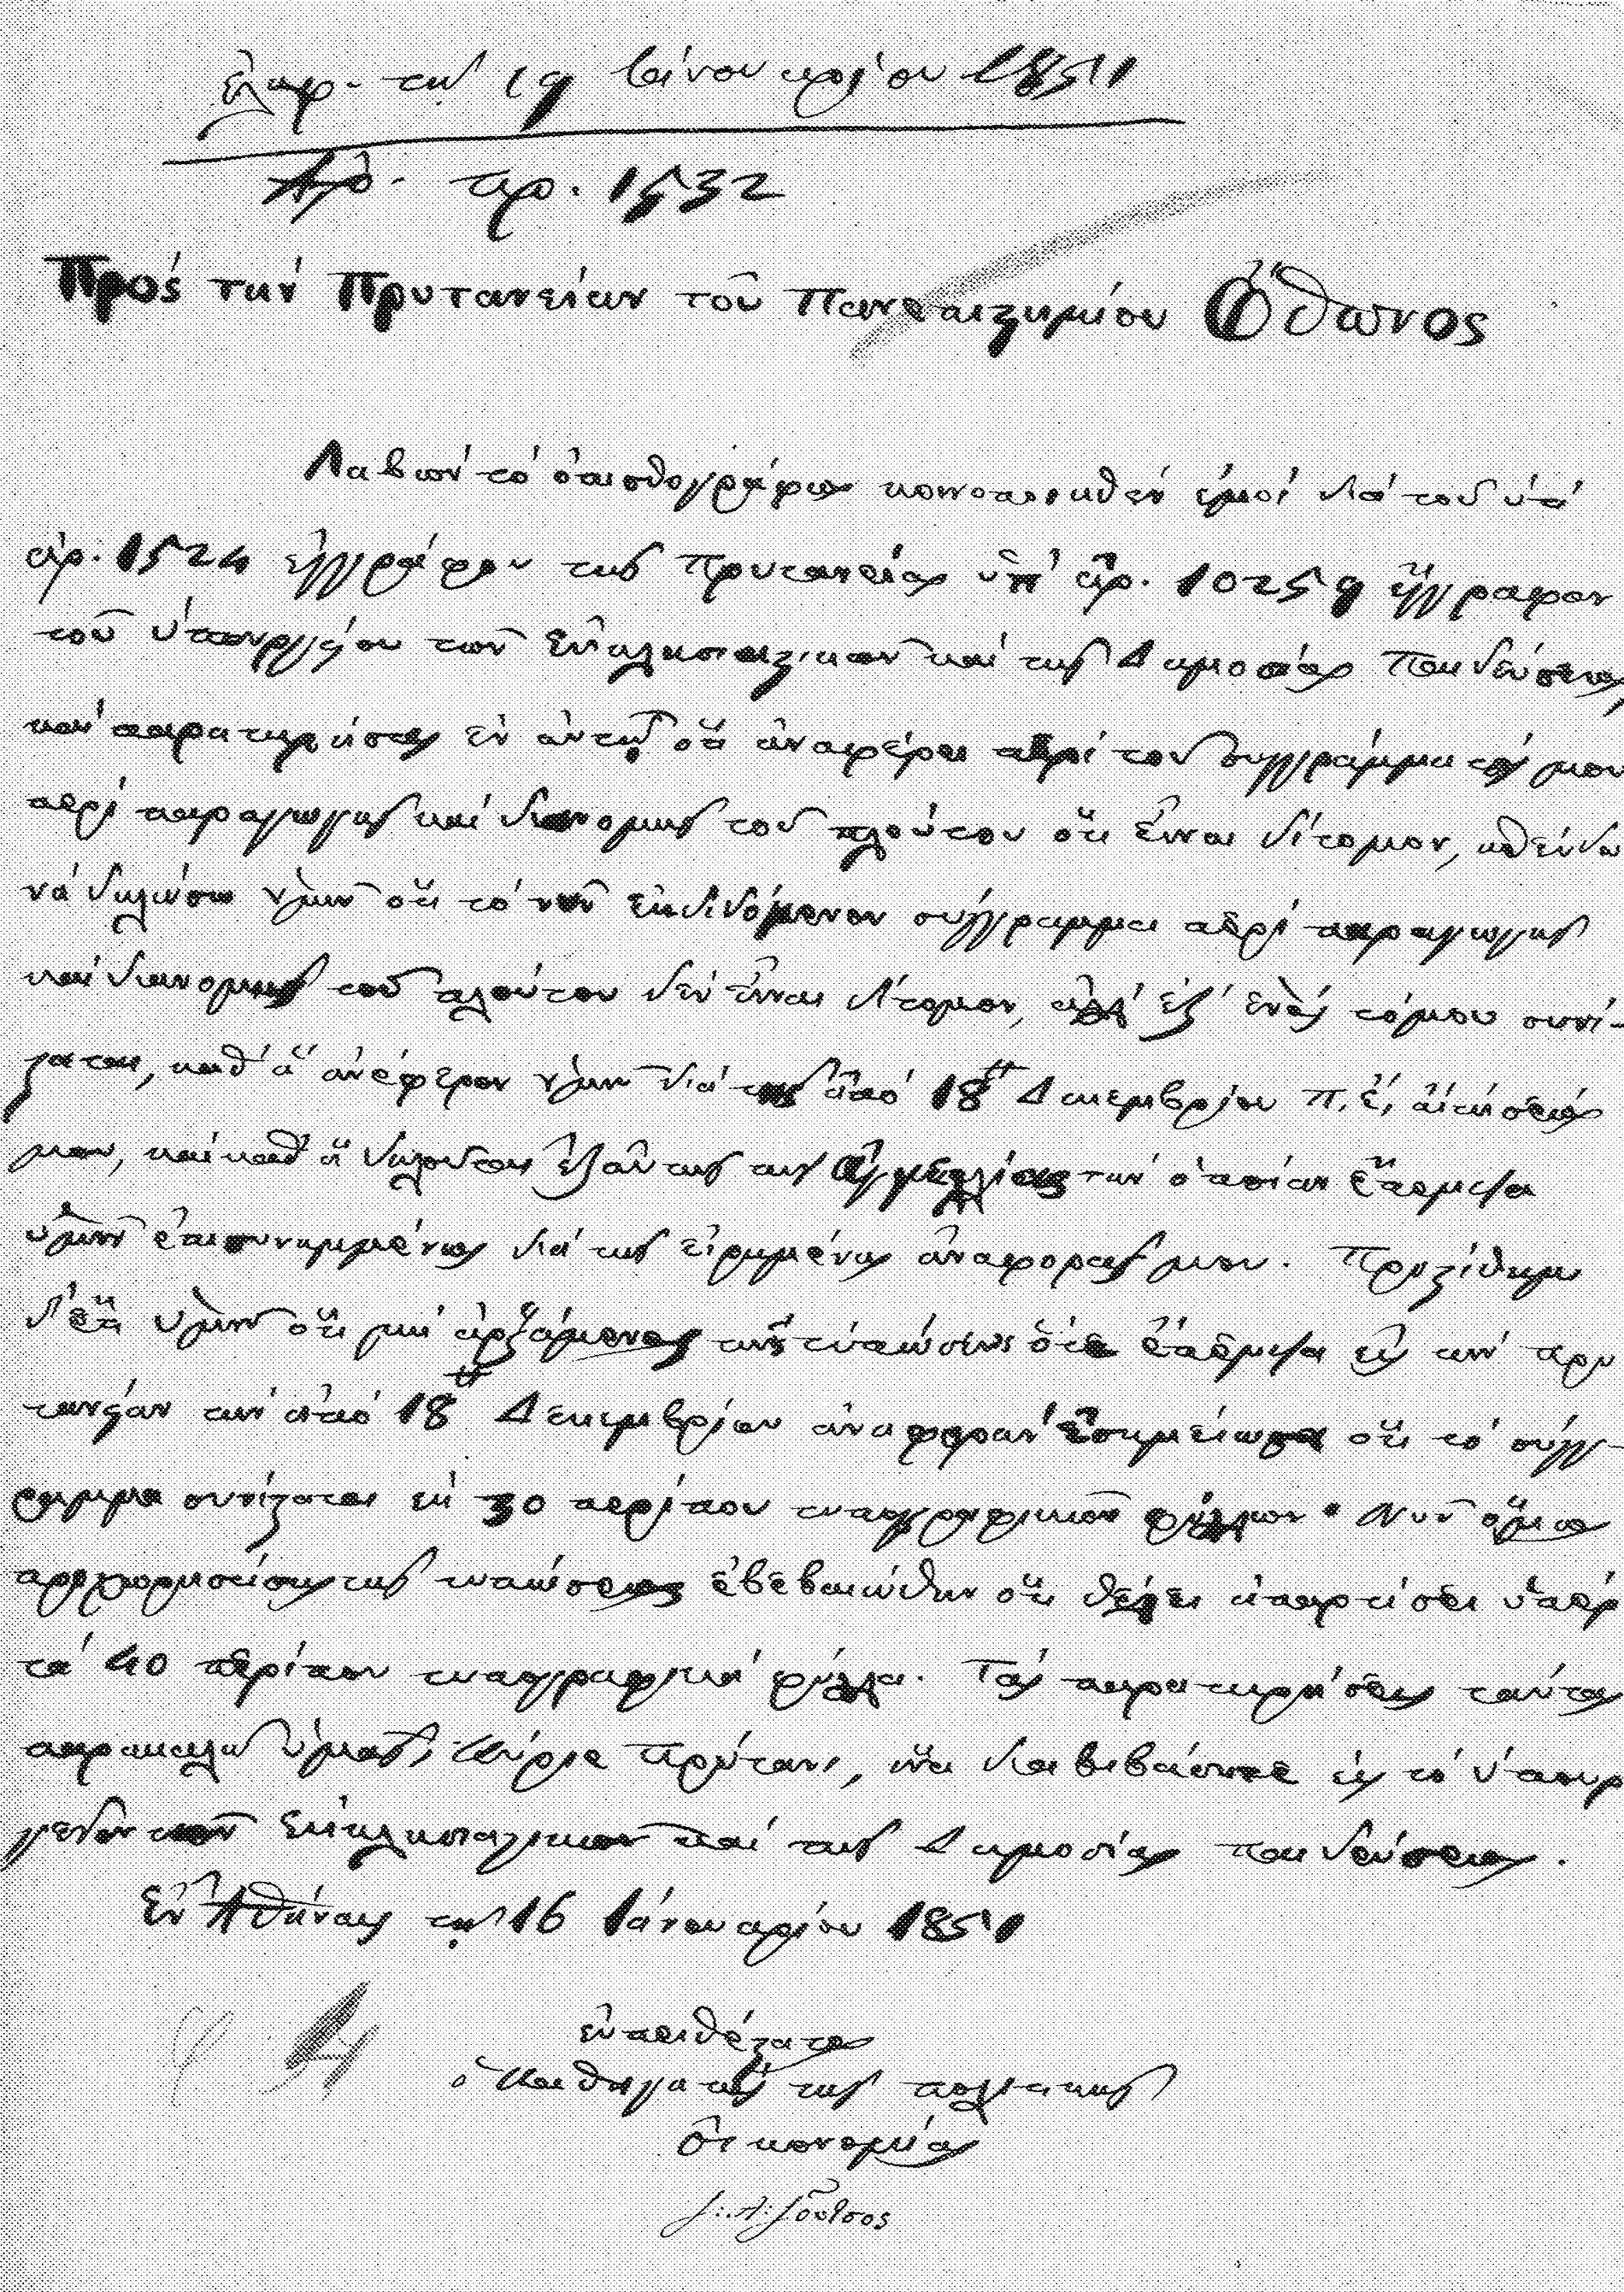 ἐλήφ. τὴν 19 Ἰανουαρίου 1851
Ἀρ. πρ. 1532
Πρὸς τὴν Πρυτανείαν τοῦ Πανεπιστημίου Ὄθωνος
Λαβὼν τὸ ὀπισθογράφως κοινοποιηθὲν ἐμοὶ διὰ τοῦ ὑπ'
ἀρ. 1524 ἐγγράφου τῆς Πρυτανείας ὑπ' ἀρ. 10259 ἔγγραφον
τοῦ Ὑπουργείου τῶν Ἐκκλησιαστικῶν καὶ τῆς Δημοσίας Παιδεύσεως,
καὶ παρατηρήσας ἐν αὐτῷ ὅτι ἀναφέρει περὶ τοῦ συγγράμματός μου
περὶ παραγωγῆς καὶ διανομῆς τοῦ πλούτου ὅτι εἶναι δίτομον,
νὰ δηλώσω ὑμῖν ὅτι τὸ νῦν ἐκδιδόμενον σύγγραμμα περὶ παραγωγῆς
καὶ διανομῆς τοῦ πλούτου δὲν εἶναι δίτομον, ἀλλ' ἐξ ἑνὸς τόμου συνί-
σταται, καθ' ἃ ἀνέφερον ὑμῖν διὰ τῆς ἀπὸ 18 Δεκεμβρίου π. ἔ. αἰτήσεώς
μου, καὶ καθ' ἃ δηλοῦται ἐξ αὐτῆς τῆς ἀγγελίας τὴν ὁποίαν ἔπεμψα
ὑμῖν ἐπισυνημμένως διὰ τῆς εἰρημένης ἀναφορᾶς μου. Προστίθημι
δ' ἔτι ὑμῖν ὅτι μὴ ἀρξάμενος τῆς τυπώσεως ὅτε ἔπεμψα εἰς τὴν πρυ
τανείαν τὴν ἀπὸ 18 Δεκεμβρίου ἀναφορὰν ἐσημείωσα ὅτι τὸ σύγγ-
ραμμα συνίσταται ἐκ 30 περίπου τυπογραφικῶν φύλλων. Νῦν ὅμως
προχωρησάσης τῆς τυπώσεως ἐβεβαιώθην ὅτι θέλει ἀπαρτίσει ὑπὲρ
τὰ 40 περίπου τυπογραφικὰ φύλλα. Τὰς παρατηρήσεις ταύτας
παρακαλῶ ὑμᾶς, Κύριε Πρύτανι, ἵνα διαβιβάσητε εἰς τὸ Ὑπουρ
γεῖον τῶν Ἐκκλησιαστικῶν καὶ τῆς Δημοσίας παιδεύσεως.
Ἐν Ἀθήναις τῇ 16 Ἰανουαρίου 1851
εὐπειθέστατος
ὁ Καθηγητὴς τῆς πολιτικῆς
Οἰκονομίας
Ι. Α. Σοῦτσος